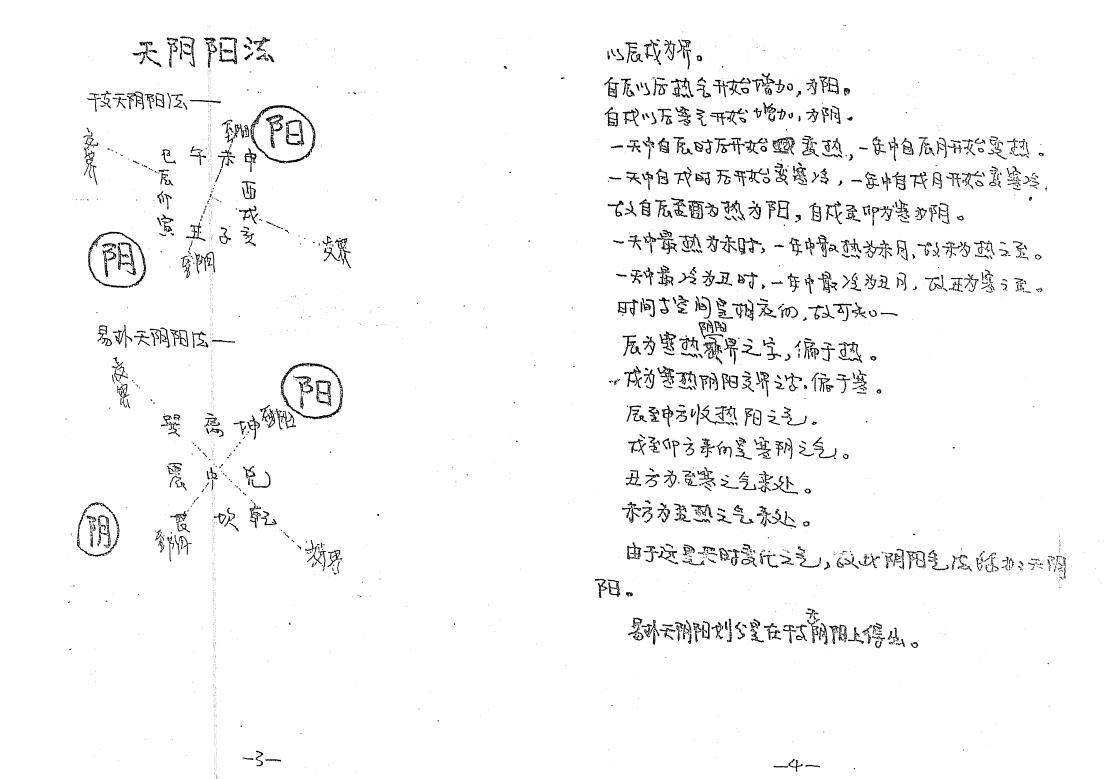 天阴阳法
干支天阴阳法——
交界
至阳
阳
巳 午 未 申
辰 酉
卯 戌
寅 丑 子 亥
阴
至阴
交界
易卦天阴阳法——
交界
阳
巽 离 坤 至阳
震 中 兑
艮 坎 乾
阴
至阴
交界
-3-
以辰戌为界。
自辰以后热气开始增加,为阳。
自戌以后寒气开始增加,为阴。
一天中自辰时后开始变热,一年中自辰月开始变热。
一天中自戌时后开始变寒冷,一年中自戌月开始变寒冷,
故自辰至酉为热为阳,自戌至卯为寒为阴。
一天中最热为未时,一年中最热为未月,故未为热之至。
一天中最冷为丑时,一年中最冷为丑月,故丑为寒之至。
时间与空间是相应的,故可知—
辰为寒热阴阳交界之字,偏于热。
戌为寒热阴阳交界之字,偏于寒。
辰至申方收热阳之气。
戌至卯方来的是寒阴之气。
丑方为至寒之气来处。
未方为至热之气来处。
由于这是天时变化之气,故此阴阳气法称为天阴
阳。
易卦天阴阳划分是在干支天阴阳上得出。
-4-